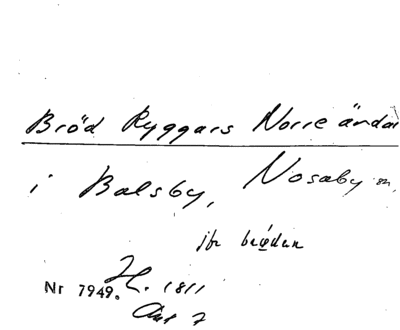 Bröd Ryggars Norre ändar
i Balsby, Nosaby sn,
jfr bröden
Nr 7949. H. 1811
Akt 7